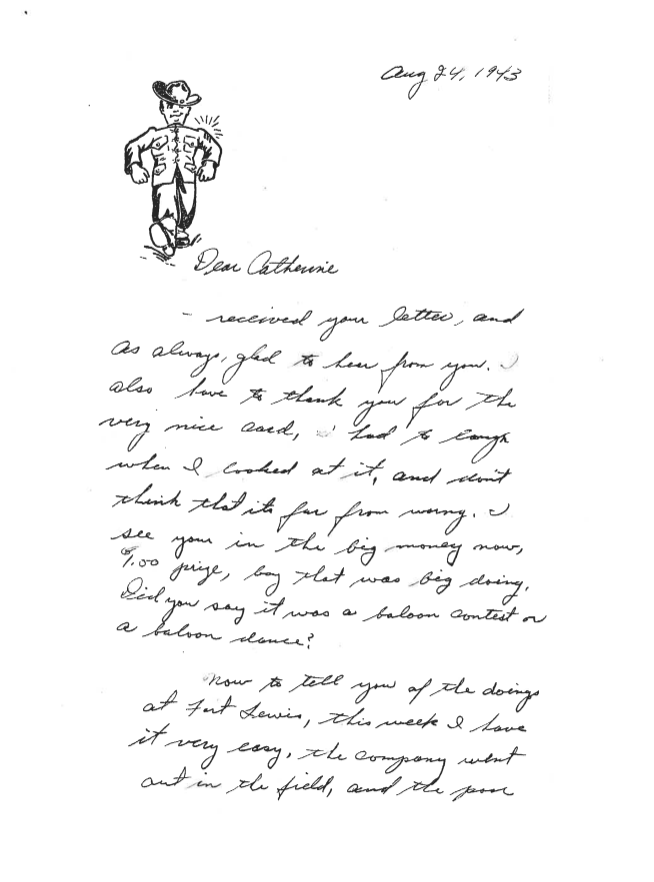 Aug 24, 1943
Dear Catherine
- received your letter, and
as always, glad to hear from you. I
also have to thank you for the
very nice card, I had to laugh
when I looked at it, and don't
think that its far from wrong. I
see your in the big money now,
$1.00 prize, boy that was big doing.
Did you say it was a baloon contest or
a baloon dance?
Now to tell you of the doings
at Fort Lewis, this week I have
it very easy, the company went
out in the field, and the poor